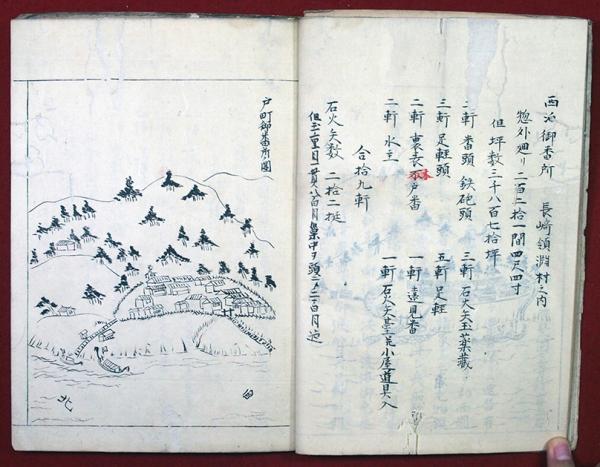 西泊御番所　長崎領淵村之内
惣外廻リ二百二拾一間四尺四寸
但坪数三千八百七拾坪
二軒 番頭 鉄砲頭　三軒 石火矢玉薬蔵
三軒 足軽頭　五軒 足軽
二軒 裏表木戸番　一軒 遠見番
二軒 水主　一軒 石火矢臺并小屋道具入
合拾九軒
石火矢数　二拾二挺
但玉一貫八百目
戸町御番所圖
北